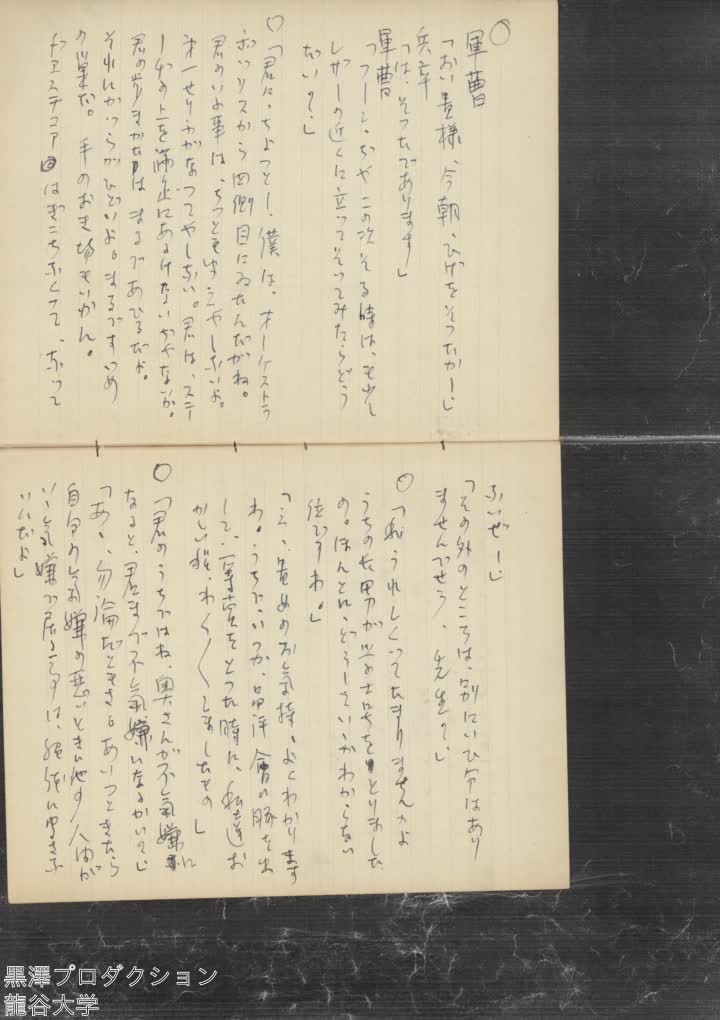 ○
軍曹
「おい貴様、今朝、ひげをそつたかー」
兵卒
「は、そつたであります」
軍曹
「フーン、ぢやこの次そる時は、も少し
レザーの近くに立ってそってみたらどう
だい？」
○「君に、ちょっとー、僕は、オーケストラ
ボックスから四側目にゐたんだがね。
君のいふ事は、ちっともきこえやしないよ。
オ一せりふがなつてやしない。君は、ステ
ーヂの上を満足にあるけないぢやないか。
君の歩きかたは まるであひるだよ。
それにかつらがひどいよ。まるですゞめ
の巣だ。手のおき場もいかん。
ヂェスチュアはぎこちなくて、なって
ないぜー」
「その外のところは、別にいひ分はあり
ませんでせう、先生？」
○「私うれしくってたまりませんわよ
うちの長男が学士号をとりました
の。ほんとに、どうしていゝかわからない
位ですわ。」
「えゝ、貴女のお気持、よくわかります
わ。うちで、いつか、品評会に豚を出
して、一等賞をとった時に、私達お
かしい程、わく／＼しましたもの」
○「君のうちではね、奥さんが不気嫌に
なると、君まで不気嫌になるかい？」
「あゝ、勿論だともさ。あいつときたら
自分の気嫌の悪いときに他の人間が
いゝ気嫌で居る事は、絶対に許さな
いんだよ」
黒澤プロダクション
龍谷大学